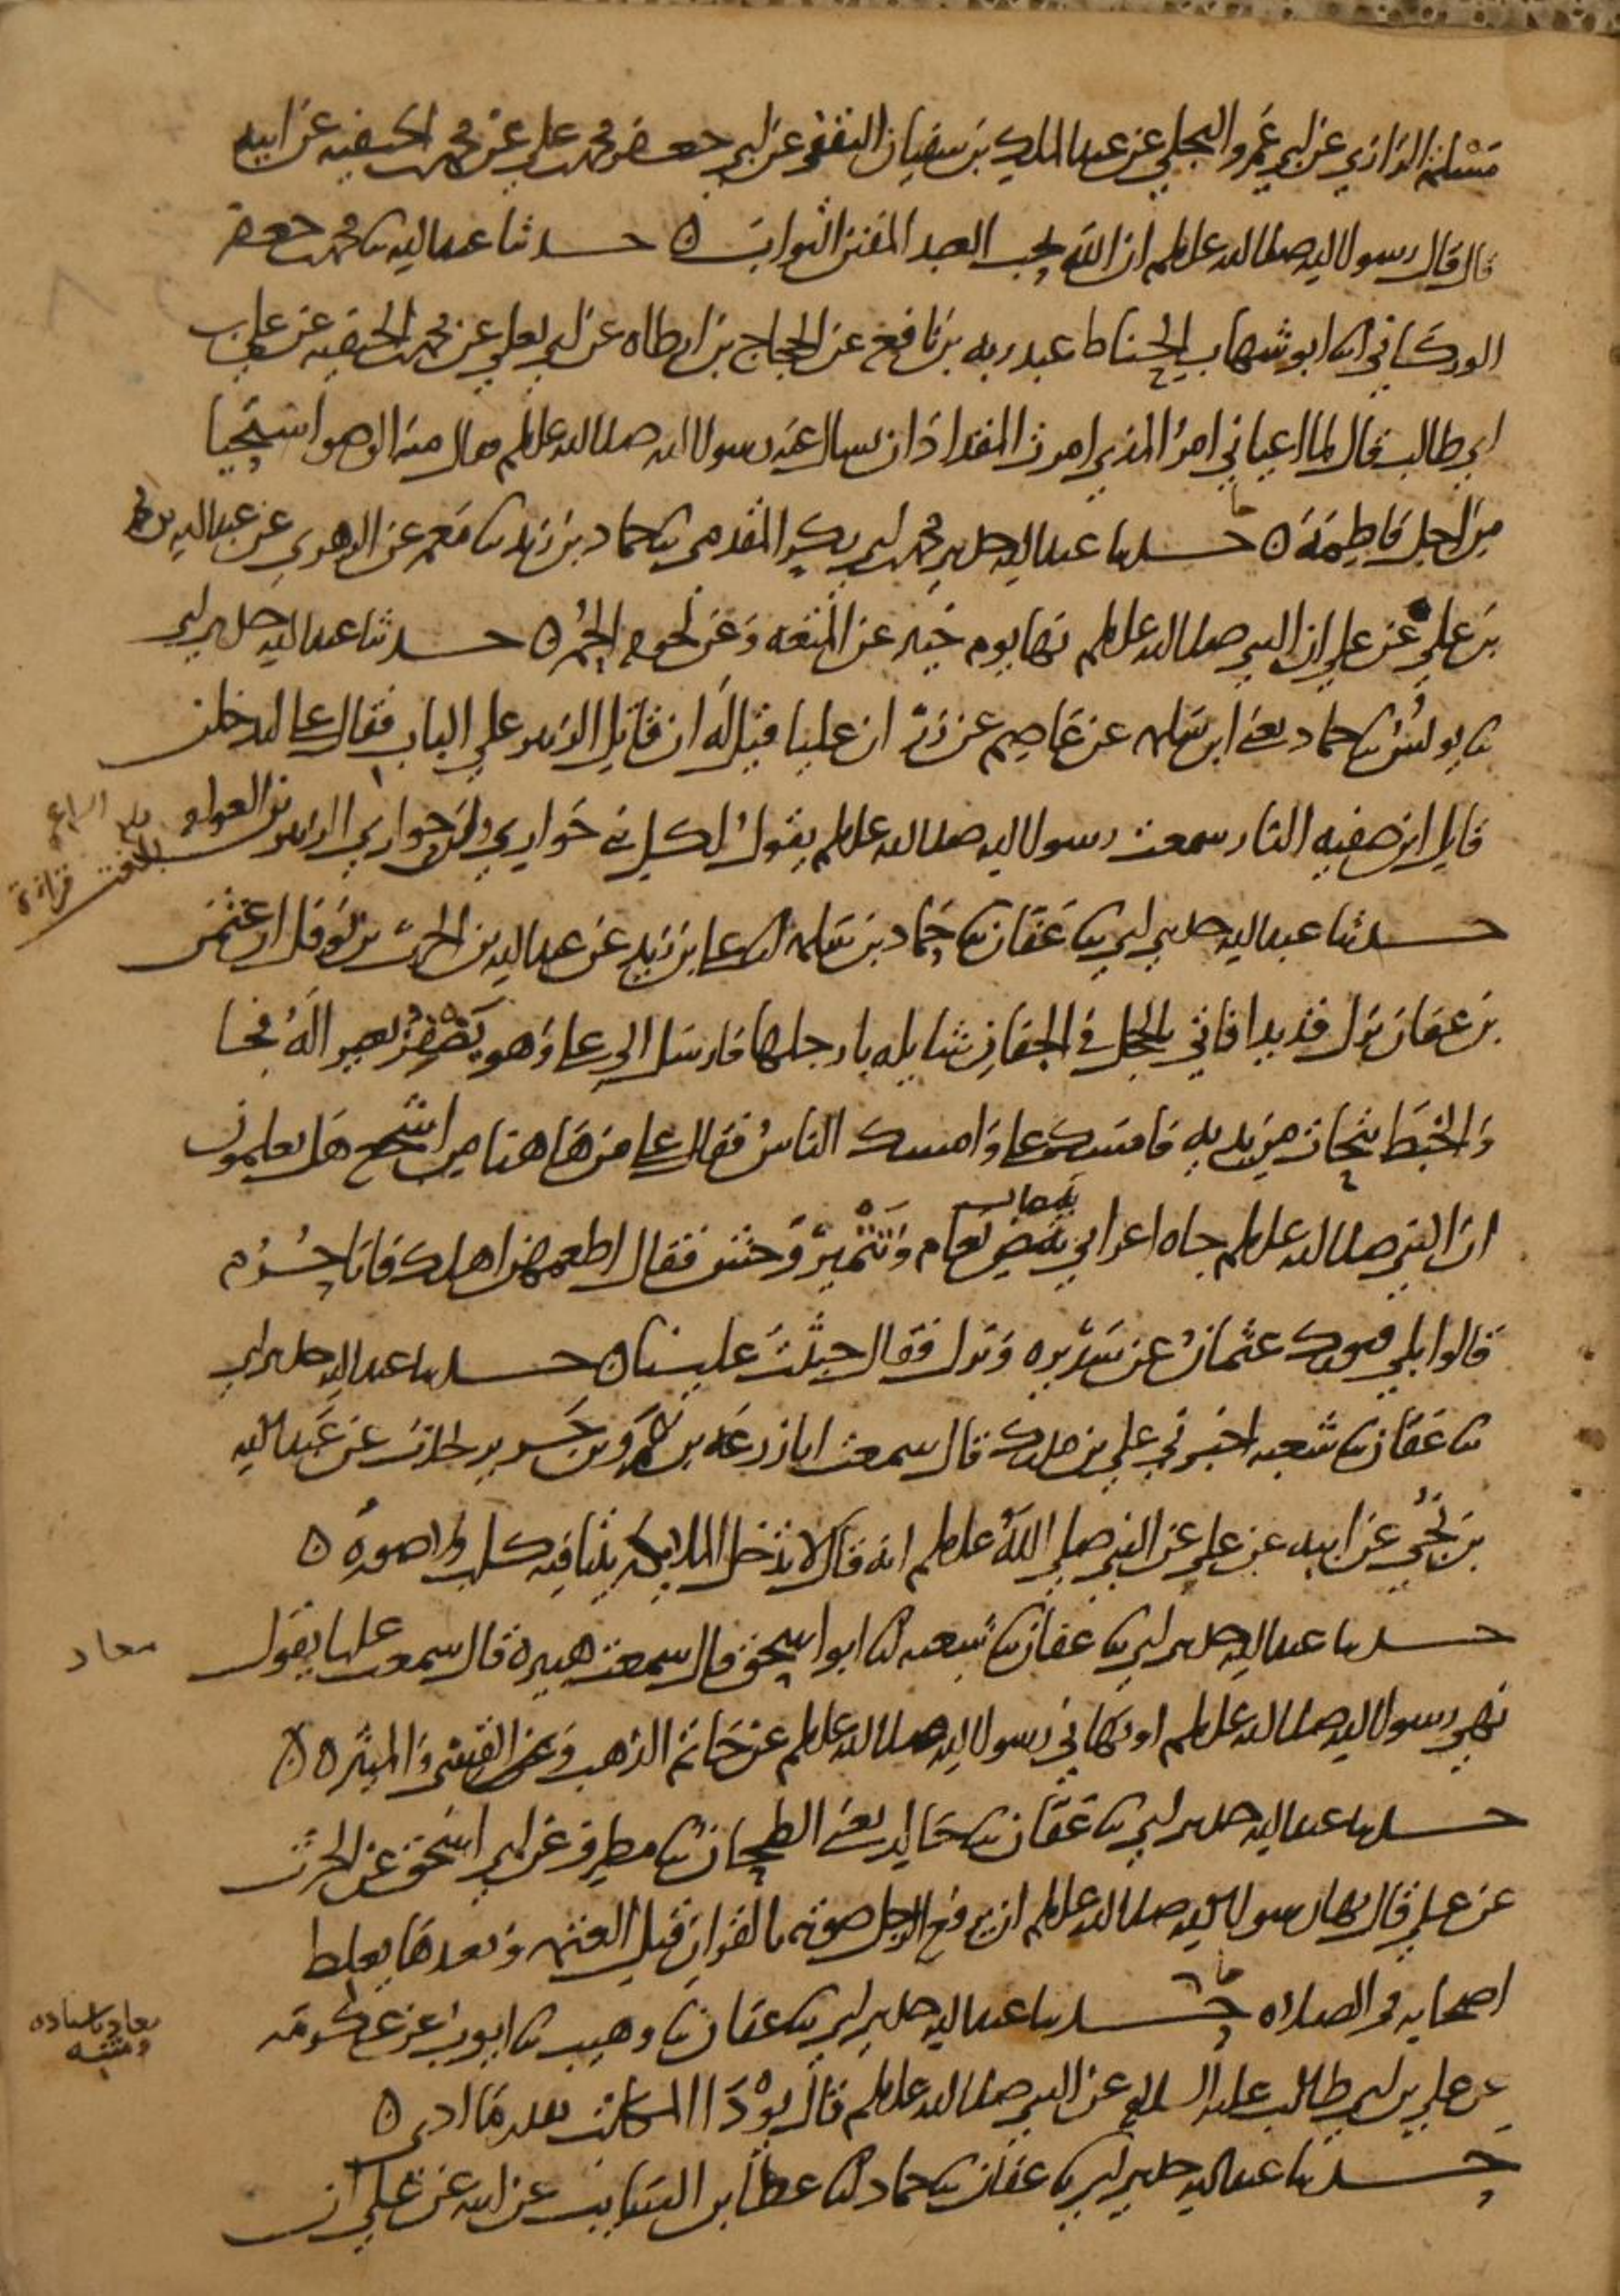 مسلمة الرازي عن ابي عمرو البجلي عن عبد الملك بن سفيان الثقفي عن ابي جعفر محمد بن علي عن محمد بن الحنفيه عن ابيه
قال قال رسول الله صلى الله عليه وسلم ان الله يحب العبد المفتن التواب ه حدثنا عبد الله نا محمد بن جعفر
الوركاني انا ابو شهاب الحناط عبد ربه بن نافع عن الحجاج بن ارطاه عن ابي يعلي عن محمد بن الحنفيه عن علي بن
ابي طالب قال لما اعياني امر المذي امرت المقداد ان يسال عنه رسول الله صلى الله عليه وسلم فقال منه الوضو استحيا
من اجل فاطمة ه حدثنا عبد الله حدثني محمد بن ابي بكر المقدمي نا حماد بن زيد نا معمر عن الزهري عن عبد الله بن محمد
بن علي عن علي ان النبي صلى الله عليه وسلم نها يوم خيبر عن المتعه وعن لحوم الحمر ه حدثنا عبد الله حدثني ابي
نا يونس نا حماد يعني ابن سلمه عن عاصم عن زر ان عليا قيل له ان قاتل الزبير على الباب فقال علي ليدخلن
قاتل ابن صفيه النار سمعت رسول الله صلى الله عليه وسلم يقول لكل نبي حواري وان حواري الزبير بن العوام
بلغت قراءة
حدثنا عبد الله حدثني ابي نا عفان نا حماد بن سلمه انا علي بن زيد عن عبد الله بن الحرث بن نوفل ان عثمن
بن عفان نزل قديدا فاتي بالحجل في الجفان شايله بارجلها فارسل الى علي وهو يضفز بعيرا له فجا
والخبط يتحات من يديه فامسك علي وامسك الناس فقال علي من ها هنا من اشجع هل تعلمون
ان النبي صلى الله عليه وسلم جاه اعرابي ببيض نعام وتتمير وحش فقال اطعمهن اهلك فانا حرم
قالوا بلي فتورك عثمان عن سريره ونزل فقال خبثت علينا ه حدثنا عبد الله حدثني ابي
نا عفان نا شعبه اخبرني علي بن مدرك قال سمعت ابا زرعه بن عمرو بن جرير يحدث عن عبد الله
بن نجي عن ابيه عن علي عن النبي صلي الله عليه وسلم انه قال لا تدخل الملايكه بيتا فيه كلب ولا صوره ه
حدثنا عبد الله حدثني ابي نا عفان نا شعبه انا ابو اسحق قال سمعت هبيرة قال سمعت عليا يقول
معاد
نهي رسول الله صلى الله عليه وسلم او نهاني رسول الله صلى الله عليه وسلم عن خاتم الذهب وعن القسي والميثره ه
حدثنا عبد الله حدثني ابي نا عفان نا خالد يعني الطحان نا مطرف عن ابي اسحق عن الحرث
عن علي قال نها رسول الله صلى الله عليه وسلم ان يرفع الرجل صوته بالقران قبل العتمه وبعدها يغلط
اصحابه في الصلاه حدثنا عبد الله حدثني ابي نا عفان نا وهيب نا ايوب عن عكرمة
معاد باسناده ومتنه
عن علي بن ابي طالب عليه السلام عن النبي صلى الله عليه وسلم قال يودا المكاتب بقدر ما ادي ه
حدثنا عبد الله حدثني ابي نا عفان نا حماد انا عطا بن السايب عن ابيه عن علي ان